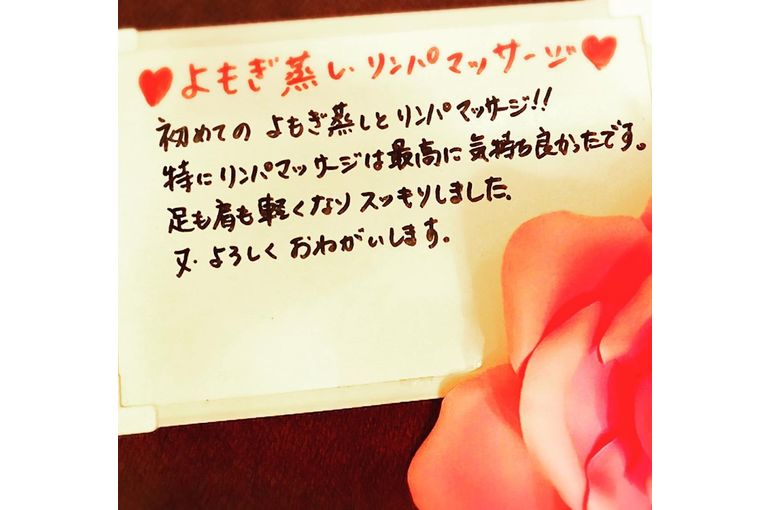 ♥よもぎ蒸し・リンパマッサージ♥
初めての よもぎ蒸しとリンパマッサージ!!
特にリンパマッサージは最高に気持ち良かったです。
足も肩も軽くなりスッキりしました。
又・よろしく おねがいします。